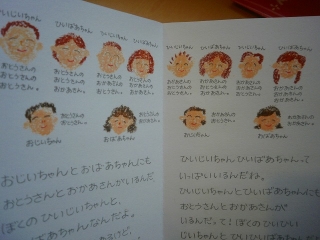 ひいじいちゃん
ひいばあちゃん
ひいじいちゃん
ひいばあちゃん
おとうさんの
おとうさんの
おとうさん。
おとうさんの
おとうさんの
おかあさん。
おとうさんの
おかあさんの
おとうさん。
おとうさんの
おかあさんの
おかあさん。
おじいちゃん
おばあちゃん
おとうさんの
おとうさん。
おじいちゃんと おばあちゃんにも
おとうさんと おかあさんがいるんだ。
ぼくの ひいじいちゃんと、
ひいばあちゃんなんだよ。
ひいじいちゃん
ひいばあちゃん
ひいじいちゃん
ひいばあちゃん
おかあさんの
おとうさんの
おとうさん。
おかあさんの
おとうさんの
おかあさん。
おかあさんの
おかあさんの
おとうさん。
おかあさんの
おかあさんの
おかあさん。
おじいちゃん
おばあちゃん
おかあさんの
おとうさん。
ひいじいちゃん ひいばあちゃんって
いっぱいいるんだよね。
ひいじいちゃんと ひいばあちゃんにも
おとうさんと おかあさんが
いるんだ。